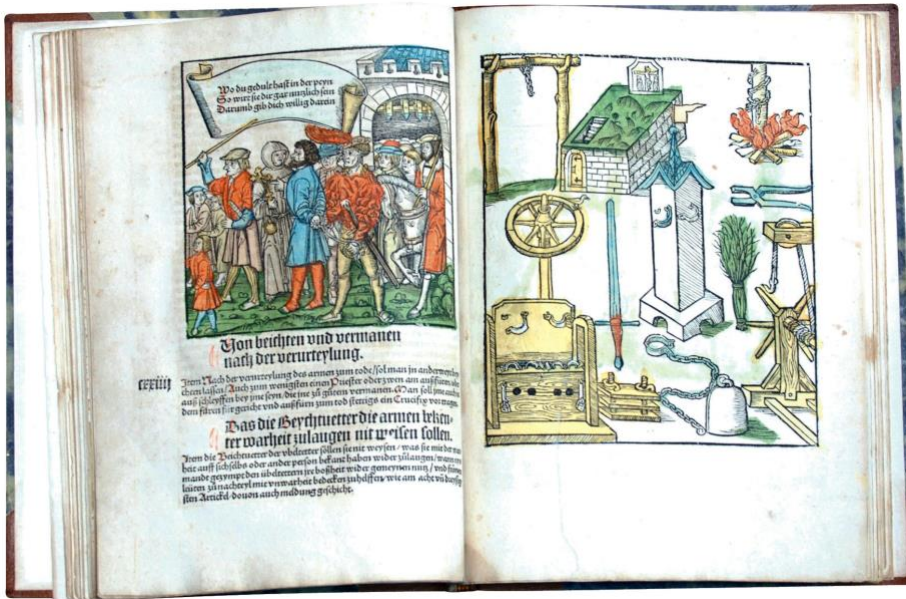 Wo du gedult hast in der peyn
So wirt sie dir gar nützlich sein
Darumb gib dich willig darein
Von beichten vnd vermanen
nach der verurteylung.
cxxiij
Item Nach der verurteylung des armen zum tode / sol man in anderwert
chten lassen Auch zum wenigsten einen Priester oder zwen am außfürn
auß schleyffen bey jme seyn / die jne zu gutem vermanen Man soll jme auch
dem füren für gericht vnd außfürn zum tod stettigs ein Crucifix vor
Das die Beychtuetter die armen beken-
ter warheit zulangen nit weisen sollen.
Item die Beichtuetter der vbeltetter söllen sie nit weysen / was sie mit der war
heit auff sich selbs oder ander person bekant haben wider zulangen / wann
mande gezympt den übeltettern jre boßheit wider gemeynen nutz / vnd
leüten zu nachteyl mit vnwarheit bedecken zuhelffen / wie am acht vñ
sten Artickel douon auch meldung geschicht.